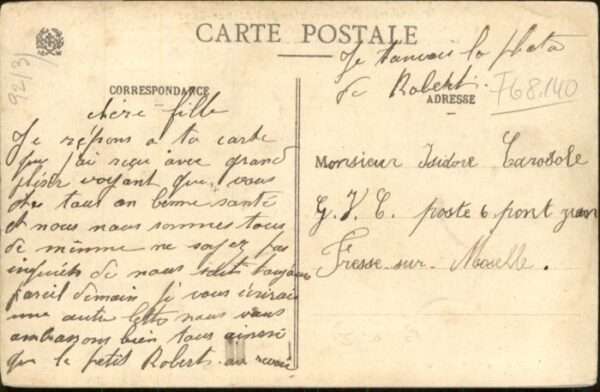 CARTE POSTALE
Je t'anvoi la phota
de Robert.
92/3
F68.140
CORRESPONDANCE
ADRESSE
chère fille
Je réspons a ta carte
que j'ai reçu avec grand
plésir voyant que vous
éte tout an bonne santé
et nous nous sommes tous
de mêmme ne soyez pas
inquiéts de nous toujour
pareil demain je vous écrirai
une autre lettre nous vous
ambrassons bien tous ainssi
que le petit Robert au revoir
Monsieur Isidore
G. V. C. poste 6 pont
Fresse-sur-Moselle.